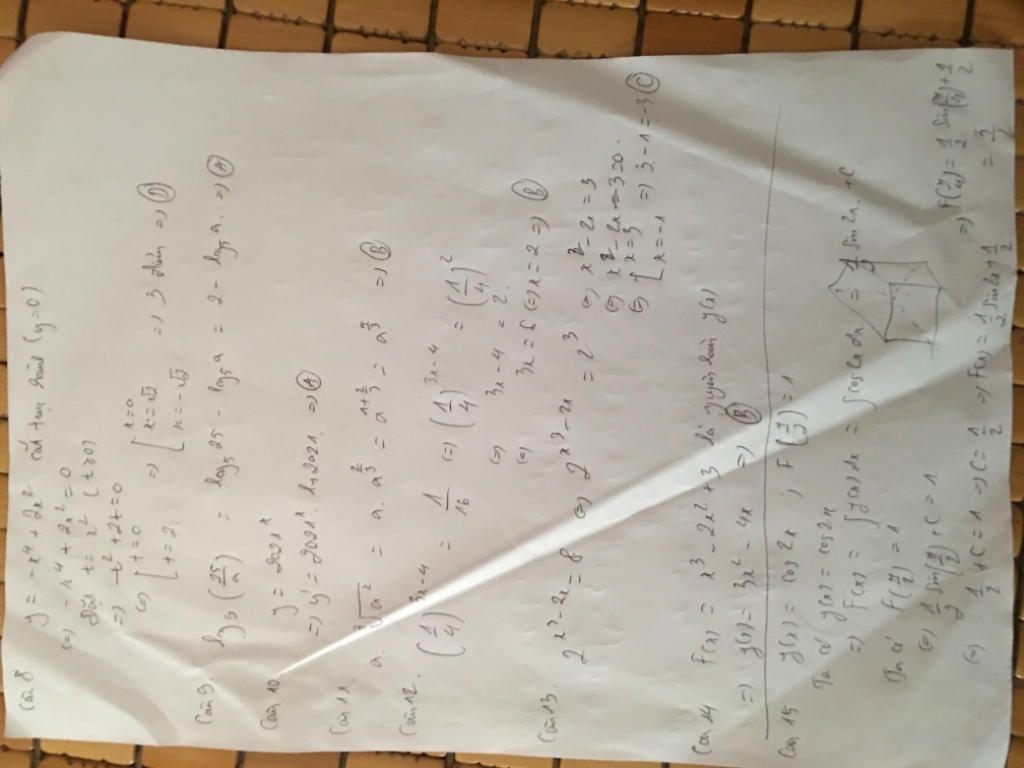 Câu 8. y = -x⁴ + 2x² cắt trục hoành (y=0)
(=) -x⁴ + 2x² = 0
Đặt t = x² (t≥0)
=> -t² + 2t = 0
(=) [ t = 0 t = 2 => [ x = 0 x = √2 x = -√2 => 3 điểm => (D)
Câu 9. log₅ (25/a) = log₅ 25 - log₅ a = 2 - log₅ a. => (A)
Câu 10 y = 2021ˣ
=> y' = 2021ˣ. ln 2021. => (A)
Câu 11. a. ∛a² = a. a^(2/3) = a^(1+2/3) = a^(5/3) => (B)
Câu 12. (1/4)^(3x-4) = 1/16 (=) (1/4)^(3x-4) = (1/4)²
(=) 3x - 4 = 2.
(=) 3x = 6 (=) x = 2 => (B)
Câu 13. 2^(x²-2x) = 8 (=) 2^(x²-2x) = 2³
(=) x² - 2x = 3
(=) x² - 2x - 3 = 0.
(=) [ x = 3 x = -1 => 3. -1 = -3 (C)
Câu 14 F(x) = x³ - 2x² + 3 là nguyên hàm f(x)
=> f(x) = 3x² - 4x => (B)
Câu 15 f(x) = cos 2x ; F(π/4) = 1
Ta có f(x) = cos 2x
=> F(x) = ∫ f(x) dx = ∫ cos 2x dx = 1/2 sin 2x + C
Mà F(π/4) = 1
(=) 1/2 sin(π/2) + C = 1
(=) 1/2 + C = 1 => C = 1/2 => F(x) = 1/2 sin 2x + 1/2 => F(π/4) = 1/2 sin(π/4) + 1/2
= 3/2